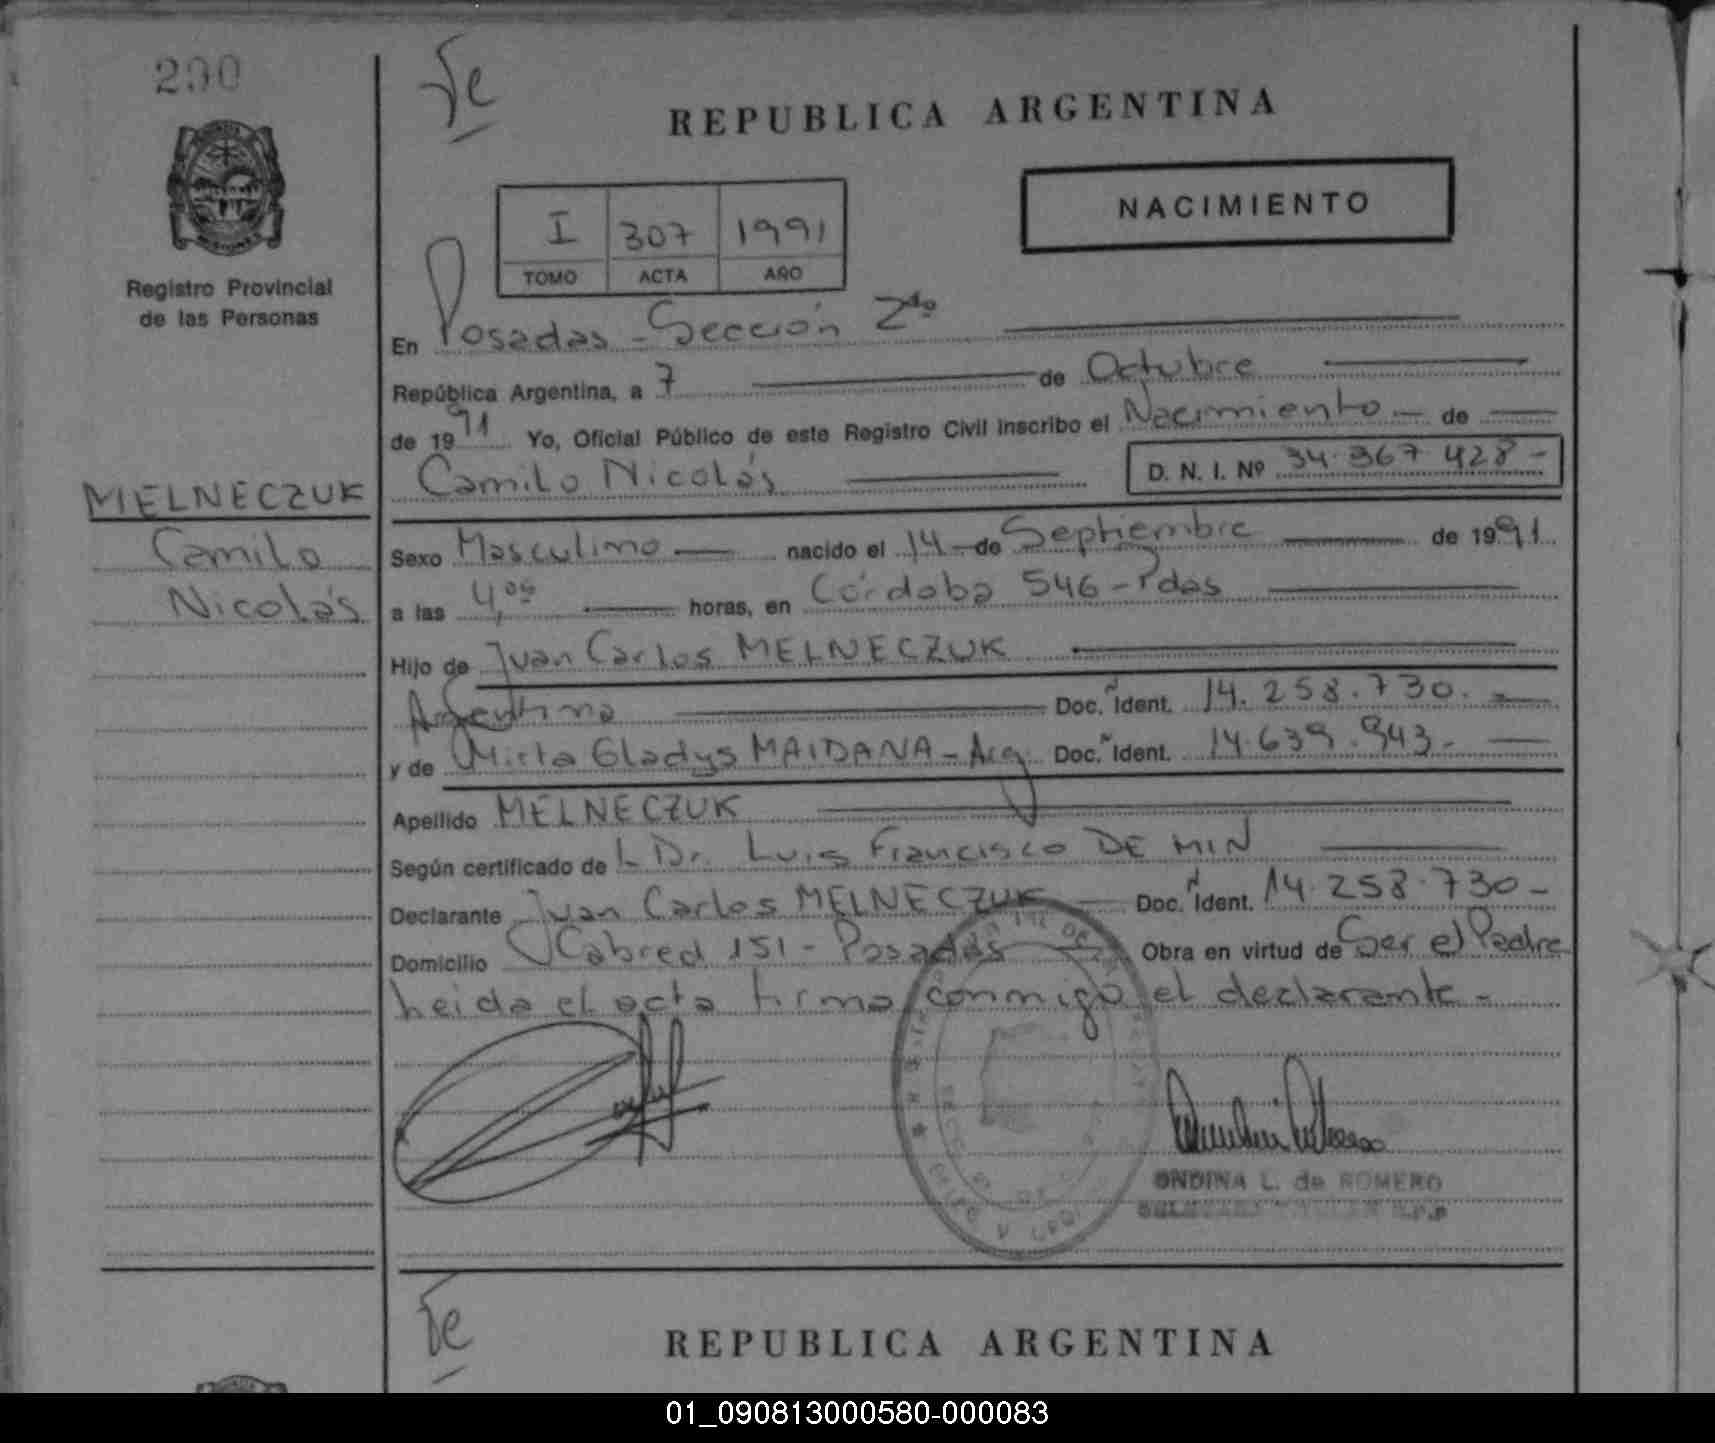 200
Te
REPUBLICA ARGENTINA
NACIMIENTO
I 307 1991
TOMO ACTA AÑO
Registro Provincial
de las Personas
En Posadas - Sección 2da
República Argentina, a 7 de Octubre
de 1991 Yo, Oficial Público de este Registro Civil inscribo el Nacimiento - de
Camilo Nicolás D. N. I. Nº 34.367.428 -
MELNECZUK
Camilo
Nicolás
Sexo Masculino nacido el 14 - de Septiembre de 1991
a las 4,05 horas, en Córdoba 546 - Pdas
Hijo de Juan Carlos MELNECZUK
Argentino Doc. Ident. 14.258.730.-
y de Mirta Gladys MAIDANA - Arg. Doc. Ident. 14.639.943.-
Apellido MELNECZUK
Según certificado de L Dr. Luis Francisco DE MIN
Declarante Juan Carlos MELNECZUK Doc. Ident. 14.258.730 -
Domicilio Cabred 151 - Posadas Obra en virtud de Ser el Padre
heida el acta firma conmigo el declarante -
ONDINA L. de ROMERO
Te
REPUBLICA ARGENTINA
01_090813000580-000083